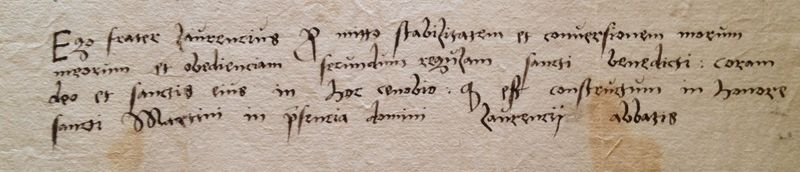 Ego frater Laurencius ꝓmitto stabilitatem et conversionem morum
meorum et obedienciam secundum regulam sancti benedicti : coram
deo et sanctis eius in hoc cenobio . qd est constructum in honore
sancti Martini in p̄sencia domini Laurencij abbatis